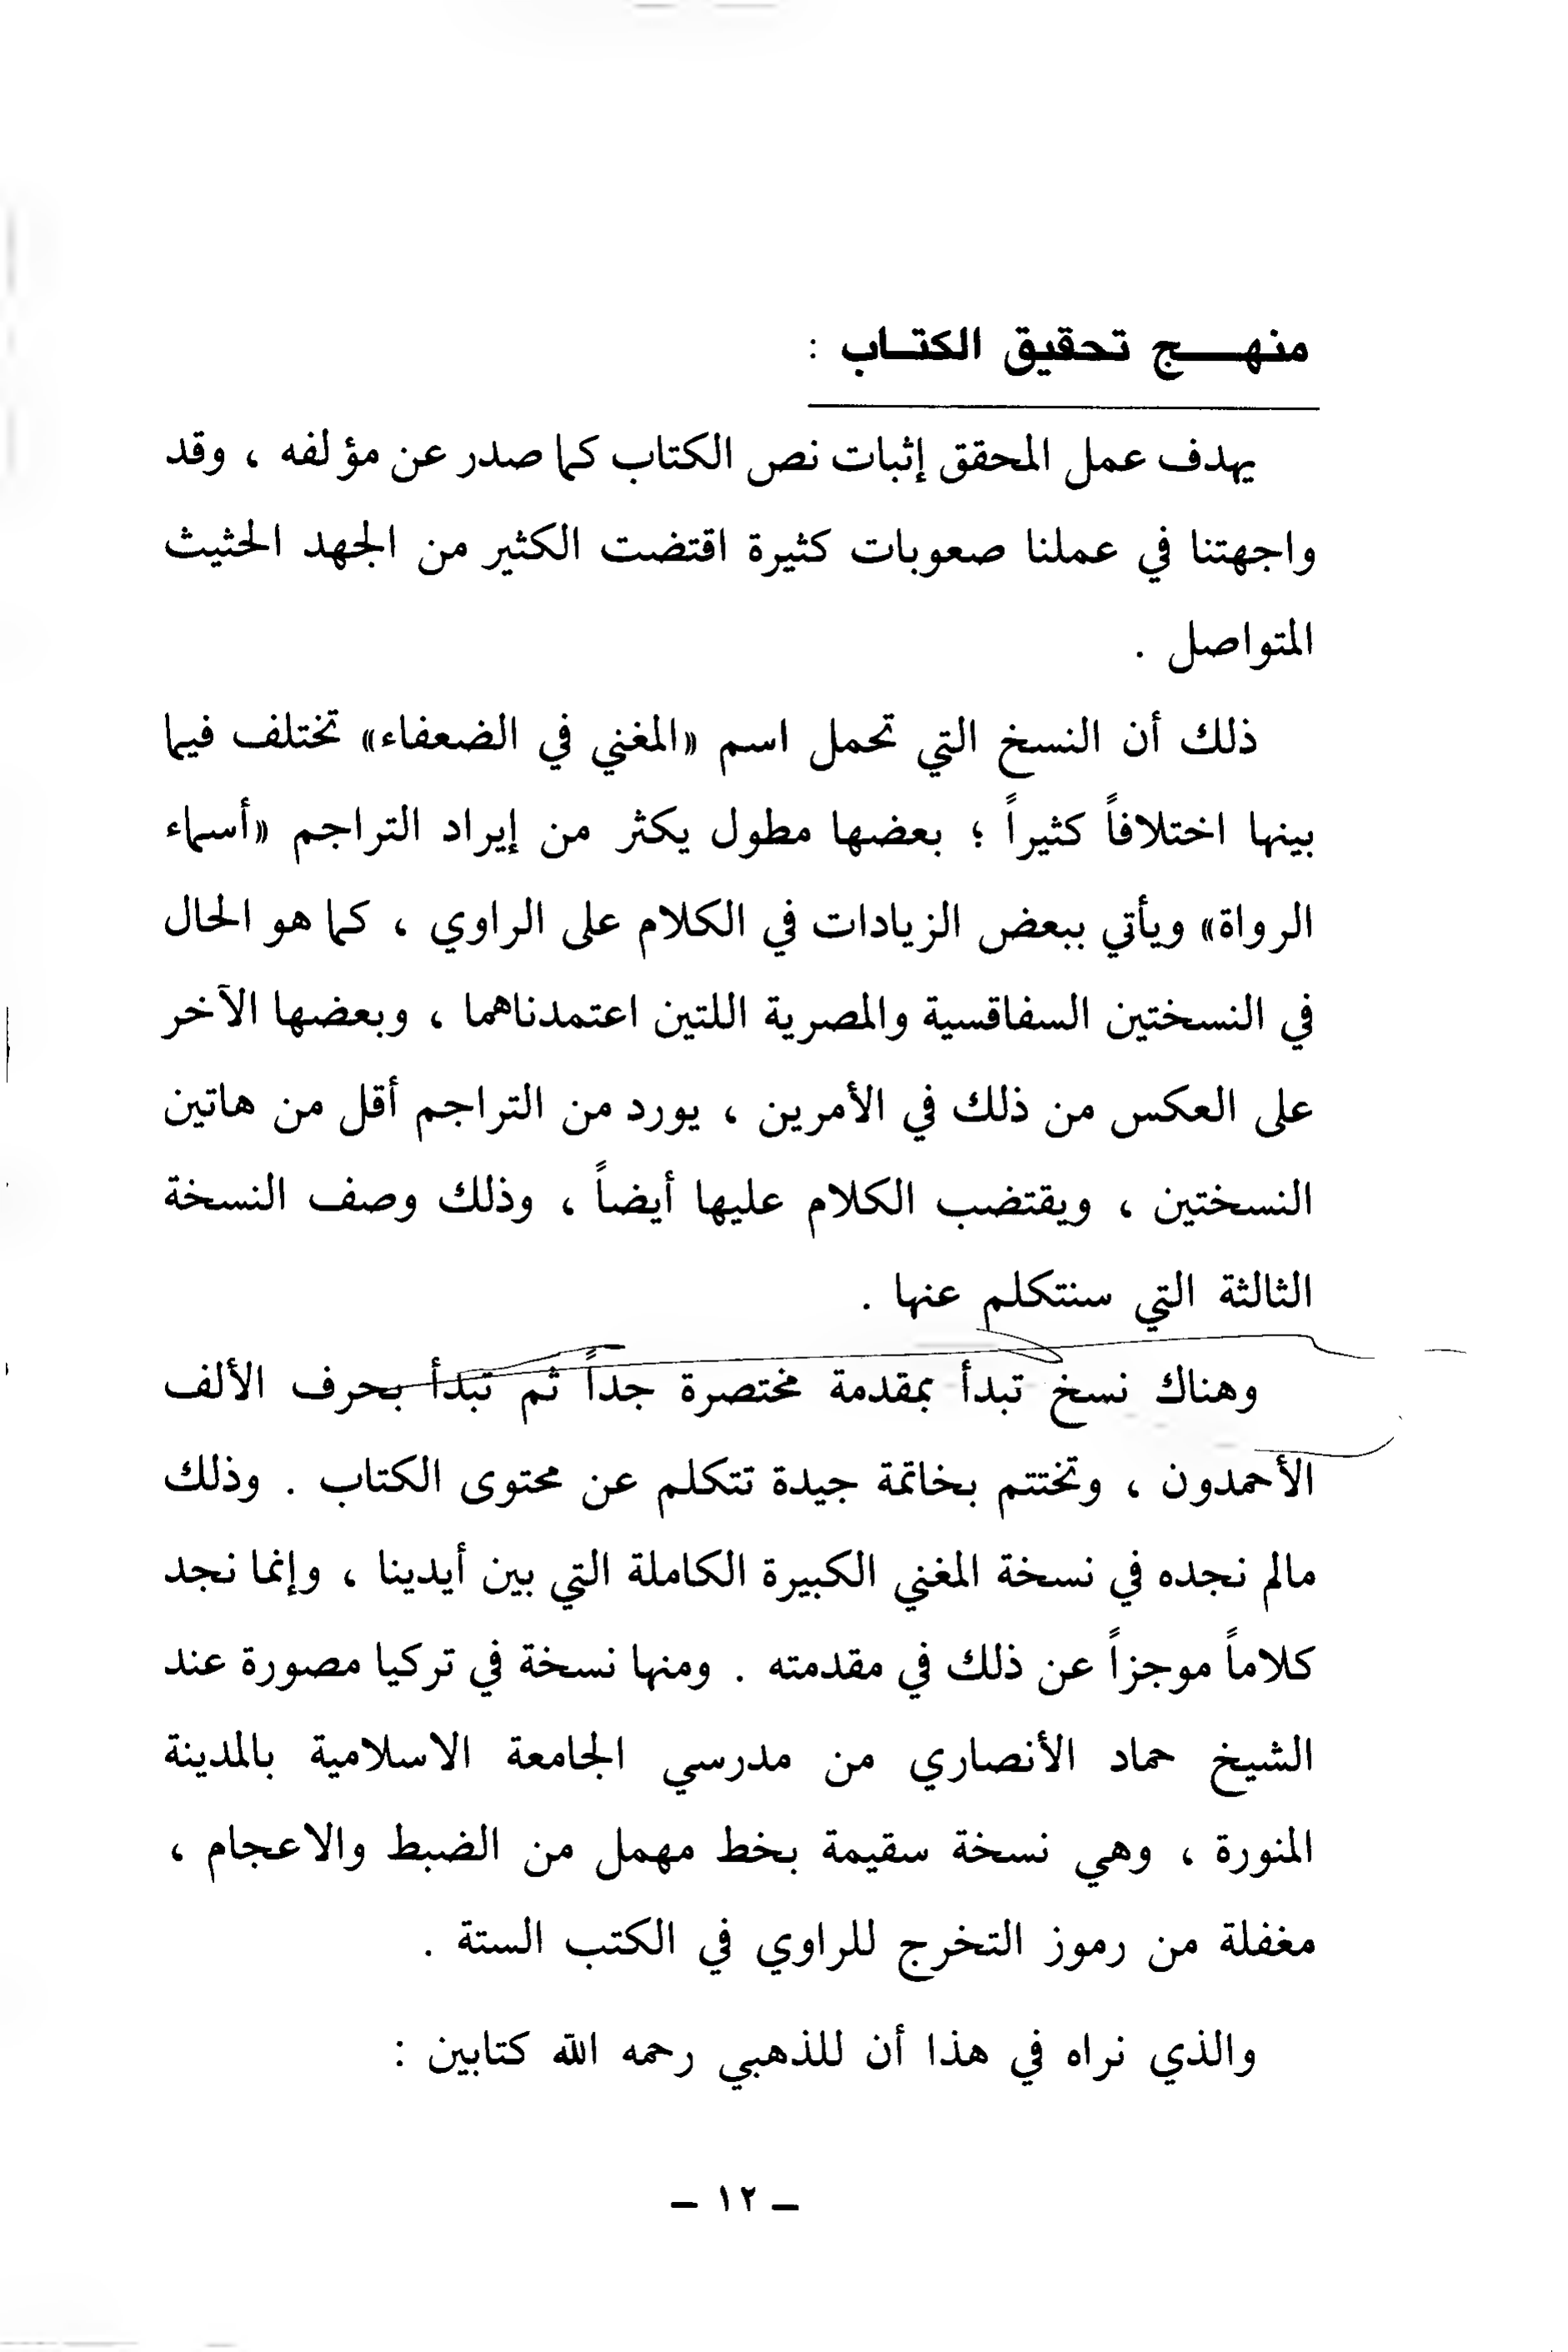 منهـــج تحقيق الكتـاب :
يهدف عمل المحقق إثبات نص الكتاب كما صدر عن مؤلفه ، وقد
واجهتنا في عملنا صعوبات كثيرة اقتضت الكثير من الجهد الحثيث
المتواصل .
ذلك أن النسخ التي تحمل اسم «المغني في الضعفاء» تختلف فيما
بينها اختلافاً كثيراً ؛ بعضها مطول يكثر من إيراد التراجم «أسماء
الرواة» ويأتي ببعض الزيادات في الكلام على الراوي ، كما هو الحال
في النسختين السفاقسية والمصرية اللتين اعتمدناهما ، وبعضها الآخر
على العكس من ذلك في الأمرين ، يورد من التراجم أقل من هاتين
النسختين ، ويقتضب الكلام عليها أيضاً ، وذلك وصف النسخة
الثالثة التي سنتكلم عنها .
وهناك نسخ تبدأ بمقدمة مختصرة جداً ثم تبدأ بحرف الألف
الأحمدون ، وتختتم بخاتمة جيدة تتكلم عن محتوى الكتاب . وذلك
مالم نجده في نسخة المغني الكبيرة الكاملة التي بين أيدينا ، وإنما نجد
كلاماً موجزاً عن ذلك في مقدمته . ومنها نسخة في تركيا مصورة عند
الشيخ حماد الأنصاري من مدرسي الجامعة الاسلامية بالمدينة
المنورة ، وهي نسخة سقيمة بخط مهمل من الضبط والاعجام ،
مغفلة من رموز التخرج للراوي في الكتب الستة .
والذي نراه في هذا أن للذهبي رحمه الله كتابين :
– ١٢ –